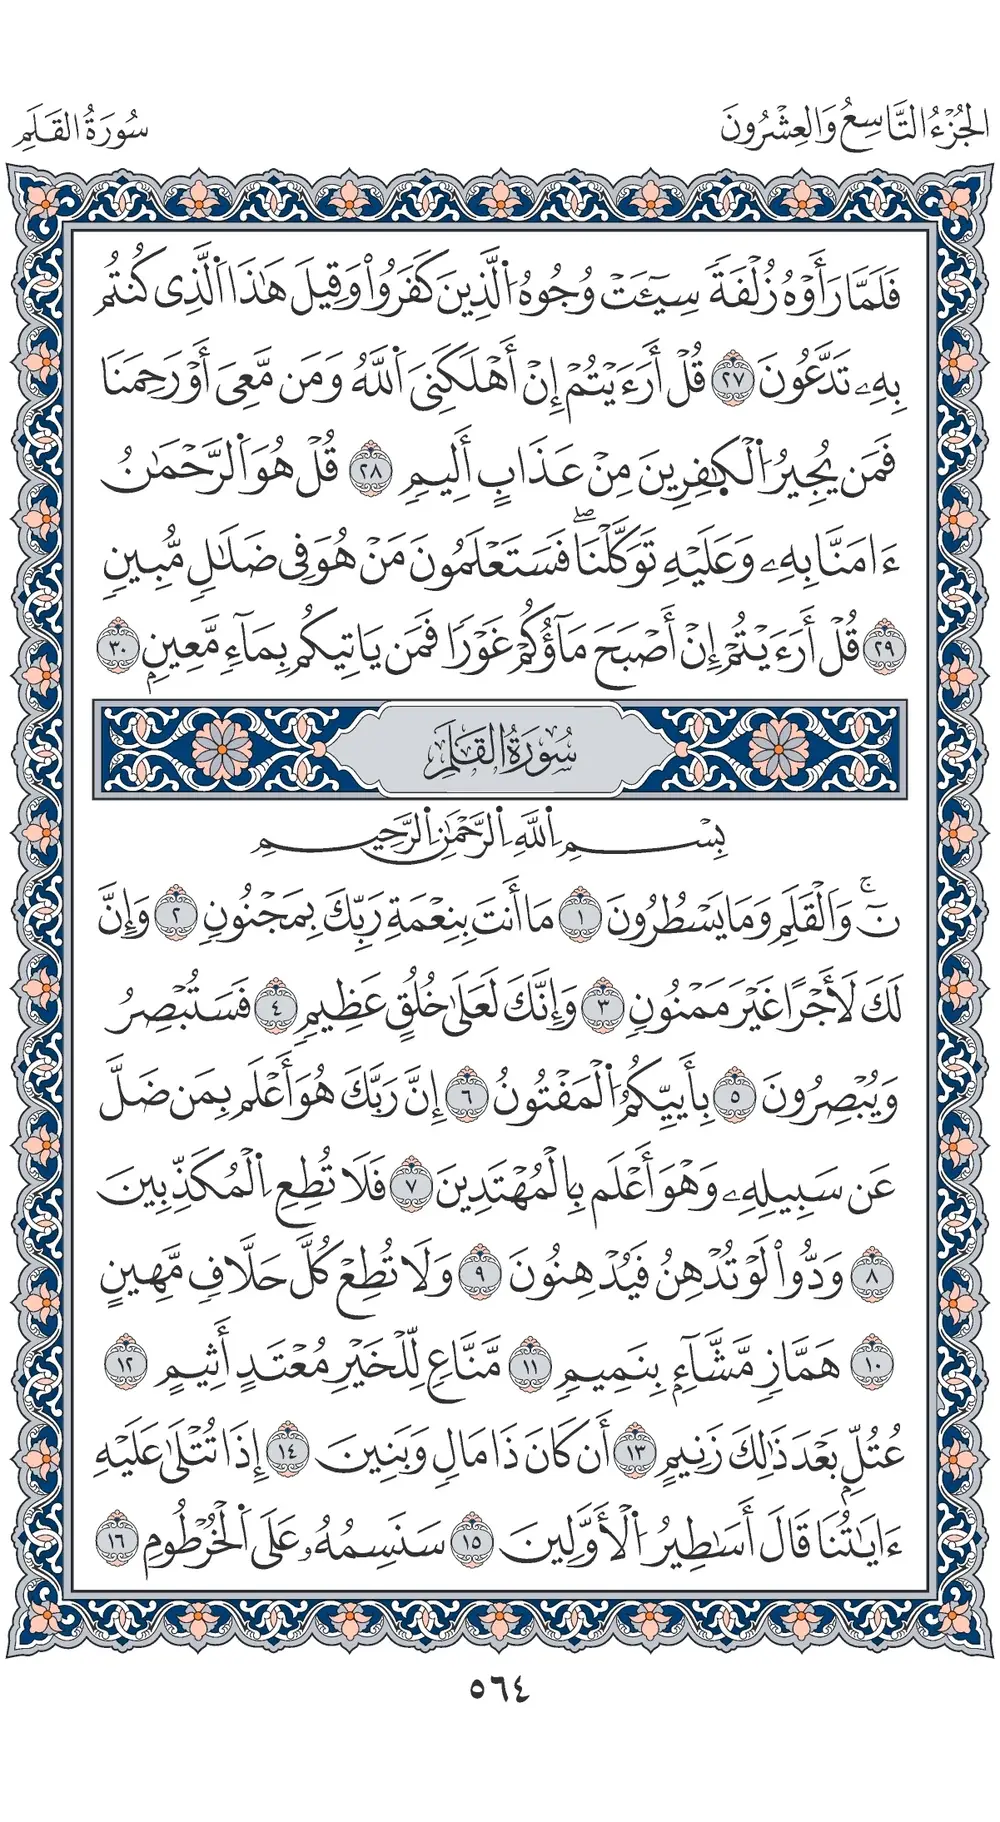 الجُزْءُ التَّاسِعُ وَالعِشْرُونَ
سُورَةُ القَلَمِ
فَلَمَّا رَأَوْهُ زُلْفَةٗ سِيٓـَٔتْ وُجُوهُ اُ۬لذِينَ كَفَرُواْ وَقِيلَ هَٰذَا اَ۬لذِي كُنتُم
بِهِۦ تَدَّعُونَ ٢٧ قُلْ أَرَءَيْتُمْ إِنْ أَهْلَكَنِيَ اَ۬للَّهُ وَمَن مَّعِي أَوْ رَحِمَنَا
فَمَن يُجِيرُ اُ۬لْكٰ۪فِرِينَ مِنْ عَذَابٍ أَلِيمٖ ٢٨ قُلْ هُوَ اَ۬لرَّحْمَٰنُ
ءَامَنَّا بِهِۦ وَعَلَيْهِ تَوَكَّلْنَاۖ فَسَتَعْلَمُونَ مَنْ هُوَ فِي ضَلَٰلٖ مُّبِينٖ
٢٩ قُلْ أَرَءَيْتُمْ إِنْ أَصْبَحَ مَآؤُكُمْ غَوْرٗا فَمَن يَاتِيكُم بِمَآءٖ مَّعِينِۭ ٣٠
سُورَةُ القَلَمِ
بِسْمِ اِ۬للَّهِ اِ۬لرَّحْمَٰنِ اِ۬لرَّحِيمِ
نٓۚ وَالْقَلَمِ وَمَا يَسْطُرُونَ ١ مَا أَنتَ بِنِعْمَةِ رَبِّكَ بِمَجْنُونٖ ٢ وَإِنَّ
لَكَ لَأَجْرًا غَيْرَ مَمْنُونٖ ٣ وَإِنَّكَ لَعَلَىٰ خُلُقٍ عَظِيمٖ ٤ فَسَتُبْصِرُ
وَيُبْصِرُونَ ٥ بِأَييِّكُمُ اُ۬لْمَفْتُونُ ٦ إِنَّ رَبَّكَ هُوَ أَعْلَم بِمَن ضَلَّ
عَن سَبِيلِهِۦ وَهْوَ أَعْلَم بِالْمُهْتَدِينَ ٧ فَلَا تُطِعِ اِ۬لْمُكَذِّبِينَ
٨ وَدُّواْ لَوْ تُدْهِنُ فَيُدْهِنُونَ ٩ وَلَا تُطِعْ كُلَّ حَلَّافٖ مَّهِينٍ
١٠ هَمَّازٖ مَّشَّآءِۭ بِنَمِيمٖ ١١ مَّنَّاعٖ لِّلْخَيْرِ مُعْتَدٍ أَثِيمٍ ١٢
عُتُلِّۭ بَعْدَ ذَٰلِكَ زَنِيمٍ ١٣ أَن كَانَ ذَا مَالٖ وَبَنِينَ ١٤ إِذَا تُتْلَىٰ عَلَيْهِ
ءَايَٰتُنَا قَالَ أَسَٰطِيرُ اُ۬لْأَوَّلِينَ ١٥ سَنَسِمُهُۥ عَلَى اَ۬لْخُرْطُومِ ١٦
٥٦٤